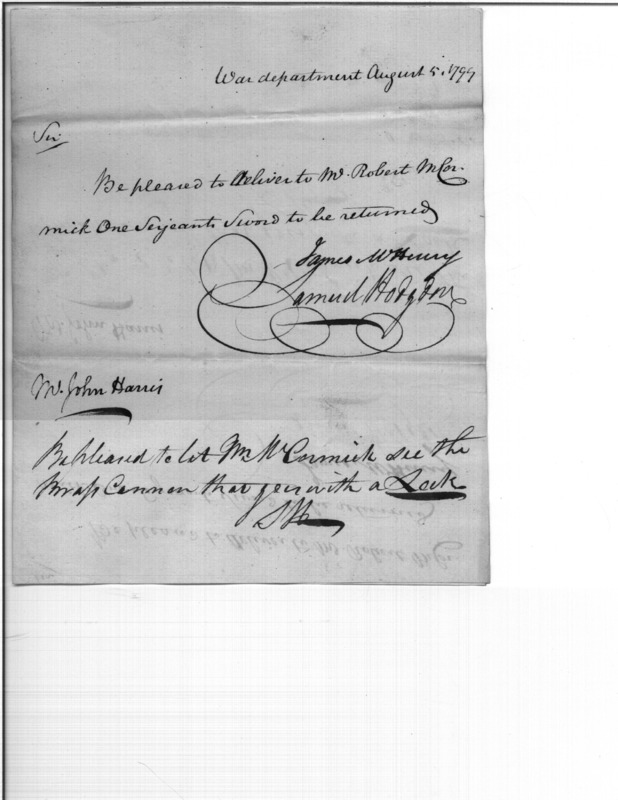 War department August 5. 1799
Sir
Be pleased to deliver to Mr. Robert McCor-
mick One Serjeants Sword to be returned
James McHenry
Samuel Hodgdon
Mr. John Harris
Be pleased to let Mr. McCormick see the
Brass Cannon that goes with a Lock
SH